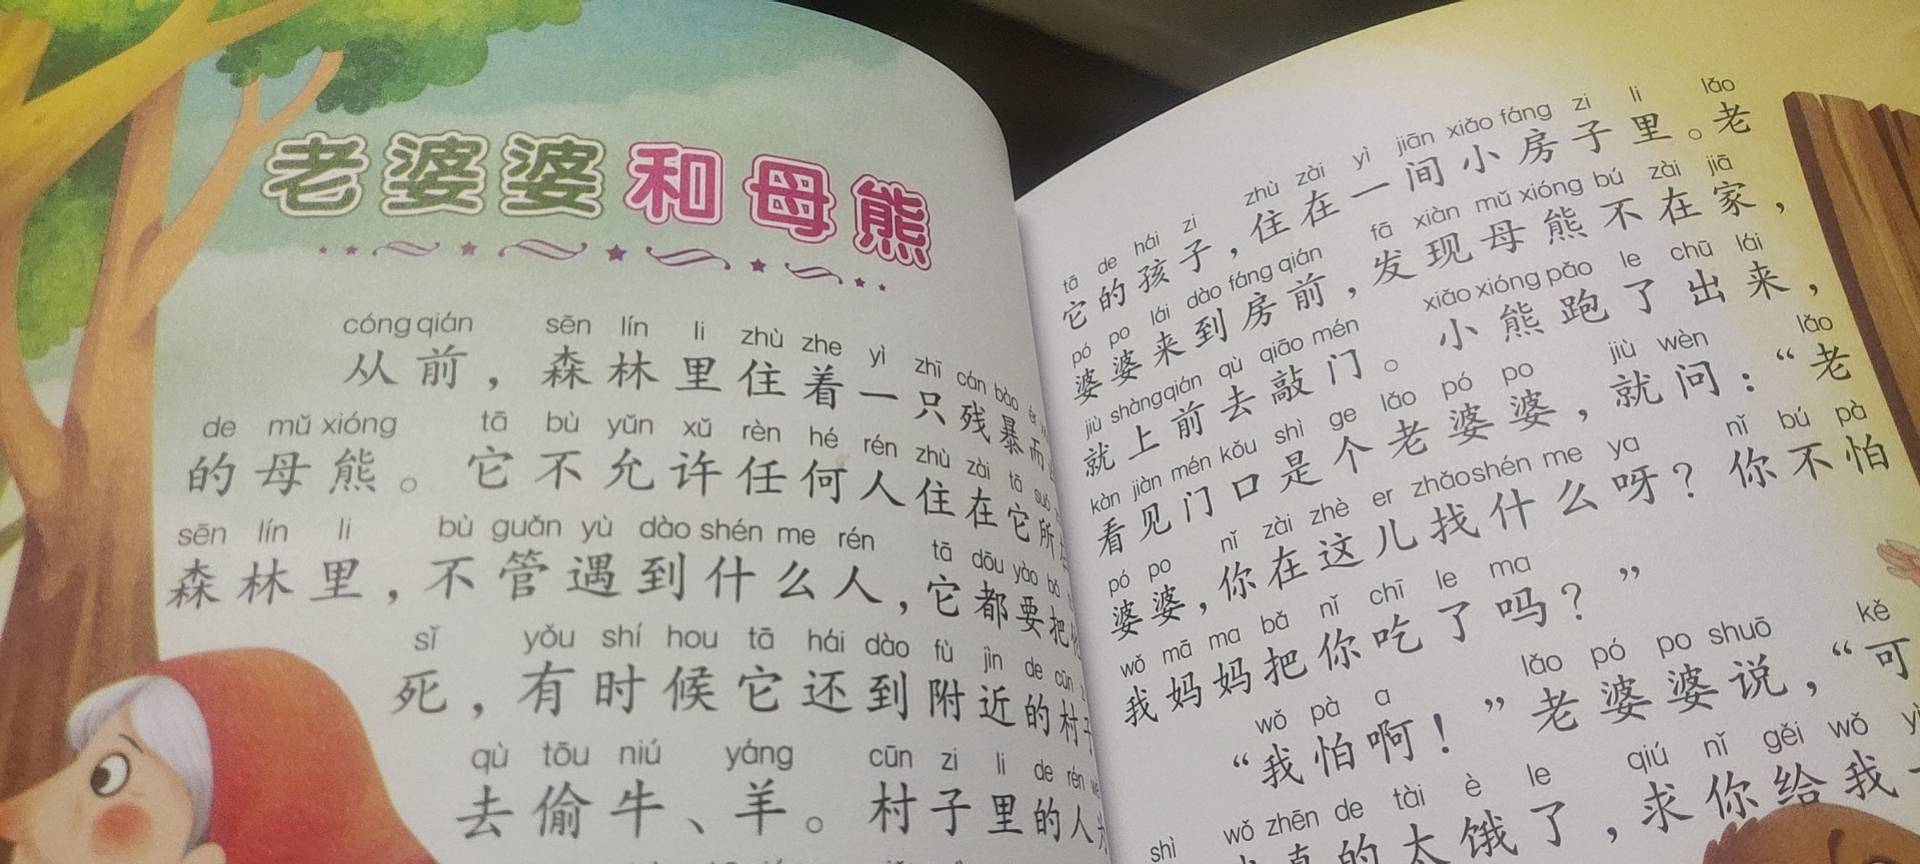 老婆婆和母熊
cóng qián sēn lín li zhù zhe yì zhī cán bào ér
从前，森林里住着一只残暴而
de mǔ xióng tā bù yǔn xǔ rèn hé rén zhù zài tā suǒ
的母熊。它不允许任何人住在它所
sēn lín li bù guǎn yù dào shén me rén tā dōu yào bǎ
森林里，不管遇到什么人，它都要把
sǐ yǒu shí hou tā hái dào fù jìn de cūn
死，有时候它还到附近的村子
qù tōu niú yáng cūn zi li de rén
去偷牛、羊。村子里的人
tā de hái zi zhù zài yì jiān xiǎo fáng zi li lǎo
它的孩子，住在一间小房子里。老
pó po lái dào fáng qián fā xiàn mǔ xióng bú zài jiā
婆婆来到房前，发现母熊不在家，
jiù shàng qián qù qiāo mén xiǎo xióng pǎo le chū lái
就上前去敲门。小熊跑了出来，
kàn jiàn mén kǒu shì ge lǎo pó po jiù wèn lǎo
看见门口是个老婆婆，就问：“老
pó po nǐ zài zhè er zhǎo shén me ya nǐ bú pà
婆婆，你在这儿找什么呀？你不怕
wǒ mā ma bǎ nǐ chī le ma
我妈妈把你吃了吗？”
wǒ pà a lǎo pó po shuō kě
“我怕啊！”老婆婆说，“可
shì wǒ zhēn de tài è le qiú nǐ gěi wǒ
真的太饿了，求你给我